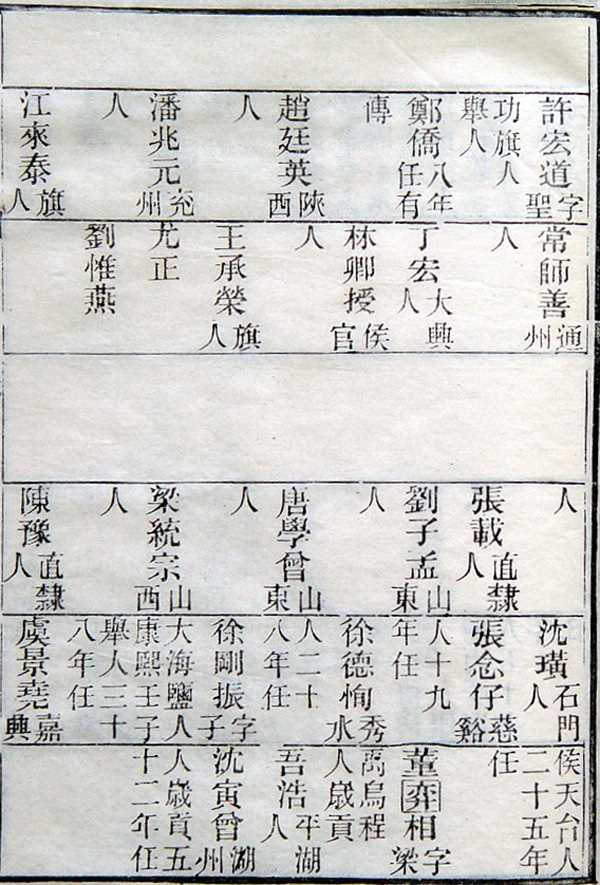 許宏道字聖
功旗人
舉人
鄭僑八年任有
傳
趙廷英陝西
人
潘兆元兖州
人
江來泰旗人
常師善通州
人
丁宏大興人
林卿授侯官
人
王承榮旗人
尤正
劉惟燕
人
張載直隸人
劉子孟山東
人
唐學曾山東
人
梁統宗山西
人
陳豫直隸人
沈璜石門人
張念仔慈谿
人十九
年任
徐德恂秀水
人二十
八年任
徐剛振字子
大海鹽人
康熙壬子
舉人三十
八年任
虞景堯嘉興
侯天台人
二十五年
任
董弈相字梁
禹烏程
人歲貢
吾浩平湖人
沈寅曾湖州
人歲貢五
十二年任